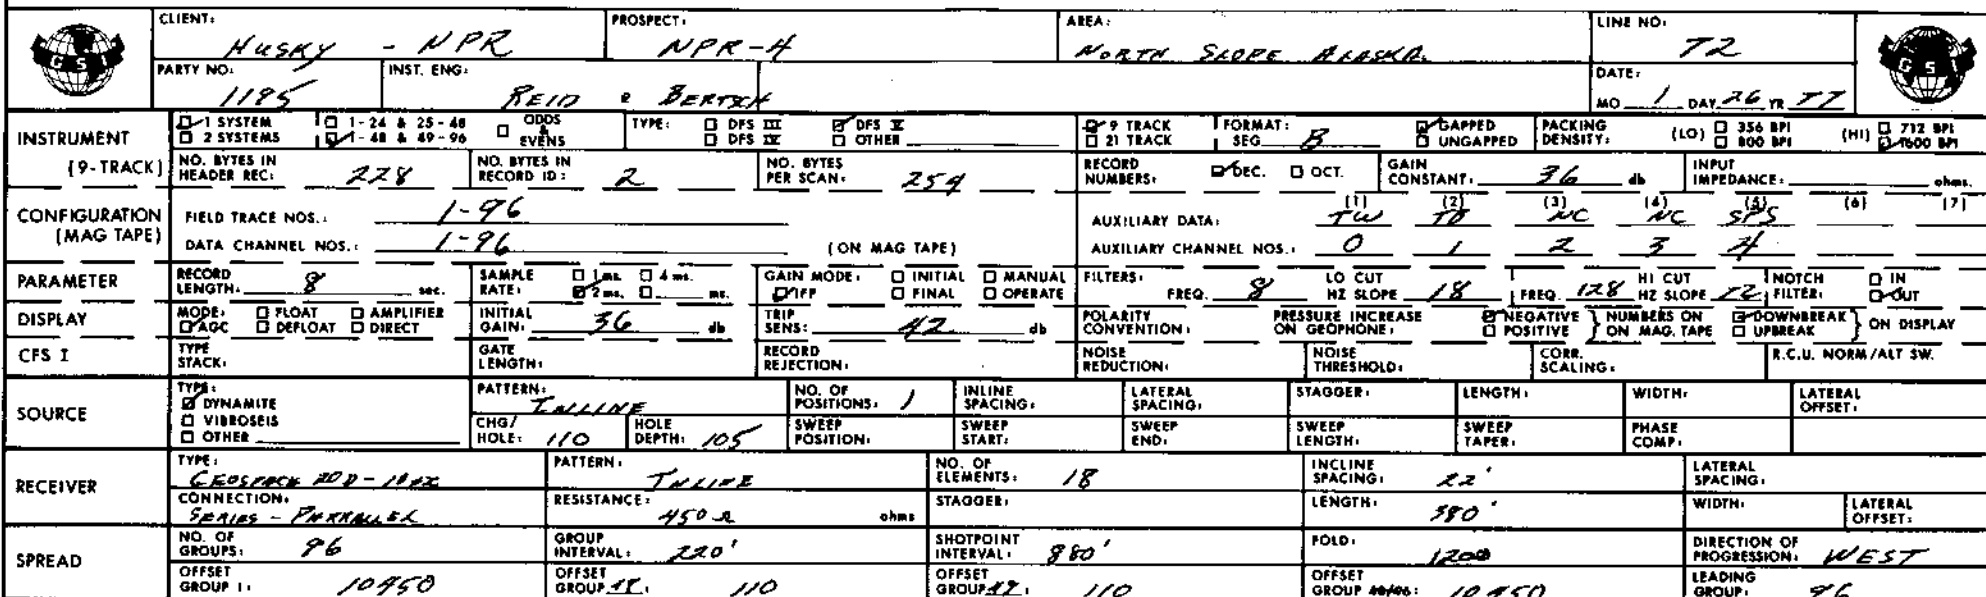 CLIENT: HUSKY - NPR PROSPECT: NPR-4 AREA: NORTH SLOPE ALASKA LINE NO: T2
GSI
GSI
PARTY NO: 1195 INST. ENG: REID & BERTSCH DATE: MO 1 DAY 26 YR 77
INSTRUMENT 1 SYSTEM 1-24 & 25-48 ODDS & EVENS TYPE: DFS III DFS V 9 TRACK FORMAT: GAPPED PACKING DENSITY: (LO) 356 BPI (HI) 712 BPI
2 SYSTEMS 1-48 & 49-96 DFS IV OTHER 21 TRACK SEG B UNGAPPED 800 BPI 1600 BPI
(9-TRACK) NO. BYTES IN HEADER REC: 228 NO. BYTES IN RECORD ID: 2 NO. BYTES PER SCAN: 254 RECORD NUMBERS: DEC. OCT. GAIN CONSTANT: 36 db INPUT IMPEDANCE: ohms.
CONFIGURATION (MAG TAPE) FIELD TRACE NOS.: 1-96 AUXILIARY DATA: (1) TW (2) TB (3) NC (4) NC (5) SPS (6) (7)
DATA CHANNEL NOS.: 1-96 (ON MAG TAPE) AUXILIARY CHANNEL NOS.: 0 1 2 3 4
PARAMETER RECORD LENGTH: 8 sec. SAMPLE RATE: 1 ms. 4 ms. 2 ms. ms. GAIN MODE: INITIAL MANUAL IFP FINAL OPERATE FILTERS: FREQ. 8 LO CUT HZ SLOPE 18 FREQ. 128 HI CUT HZ SLOPE 72 NOTCH FILTER: IN OUT
DISPLAY MODE: FLOAT AMPLIFIER AGC DEFLOAT DIRECT INITIAL GAIN: 36 db TRIP SENS: 42 db POLARITY CONVENTION: PRESSURE INCREASE ON GEOPHONE: NEGATIVE POSITIVE NUMBERS ON ON MAG. TAPE DOWNBREAK UPBREAK ON DISPLAY
CFS I TYPE STACK: GATE LENGTH: RECORD REJECTION: NOISE REDUCTION: NOISE THRESHOLD: CORR. SCALING: R.C.U. NORM/ALT SW.
SOURCE TYPE: DYNAMITE VIBROSEIS OTHER PATTERN: INLINE NO. OF POSITIONS: 1 INLINE SPACING: LATERAL SPACING: STAGGER: LENGTH: WIDTH: LATERAL OFFSET:
CHG/HOLE: 110 HOLE DEPTH: 105 SWEEP POSITION: SWEEP START: SWEEP END: SWEEP LENGTH: SWEEP TAPER: PHASE COMP:
RECEIVER TYPE: GEOSPACE 20D-10HZ PATTERN: INLINE NO. OF ELEMENTS: 18 INCLINE SPACING: 22' LATERAL SPACING:
CONNECTION: SERIES - PARALLEL RESISTANCE: 450 Ω ohms STAGGER: LENGTH: 380' WIDTH: LATERAL OFFSET:
SPREAD NO. OF GROUPS: 96 GROUP INTERVAL: 220' SHOTPOINT INTERVAL: 880' FOLD: 1200 DIRECTION OF PROGRESSION: WEST
OFFSET GROUP 1: 10450 OFFSET GROUP 48: 110 OFFSET GROUP 49: 110 OFFSET GROUP 10450 LEADING GROUP: 96